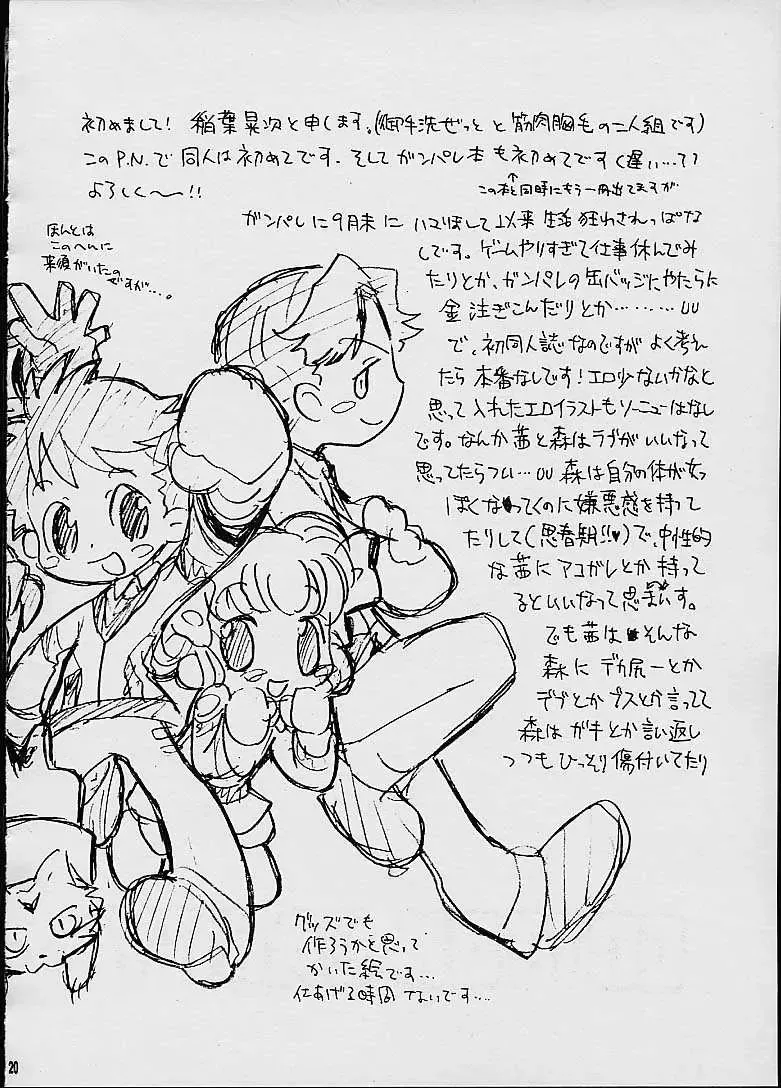 初めまして! 稲葉晃次と申します。(御手洗ぜっと と 筋肉胸毛の二人組です)
このP.N.で同人は初めてです。そしてガンパレ本も初めてです(遅い…て)
↑
この本と同時にもう一冊出てますが
よろしく〜!!
ほんとは
このへんに
来須がいたの
ですが…。
ガンパレに9月末に ハマりまして以来生活狂わされっぱな
しです。ゲームやりすぎて仕事休んでみ
たりとか、ガンパレの缶バッジにやたらに
金注ぎこんだりとか………UU
で、初同人誌なのですがよく考え
たら本番なしです!エロ少ないかなと
思って入れたエロイラストもソーニューはなし
です。なんか茜と森はラブがいいなって
思ってたらつい…UU 森は自分の体が女っ
ぽくなってくのに嫌悪感を持って
たりして(思春期!!♥)で、中性的
な茜にアコガレとか持って
るといいなって思います。
でも茜はそんな
森にデカ尻ーとか
デブとかブスとか言ってて
森はガキとか言い返し
つつもひっそり傷付いてたり
グッズでも
作ろうかと思って
かいた絵です…
仕あげる時間ないです…
20